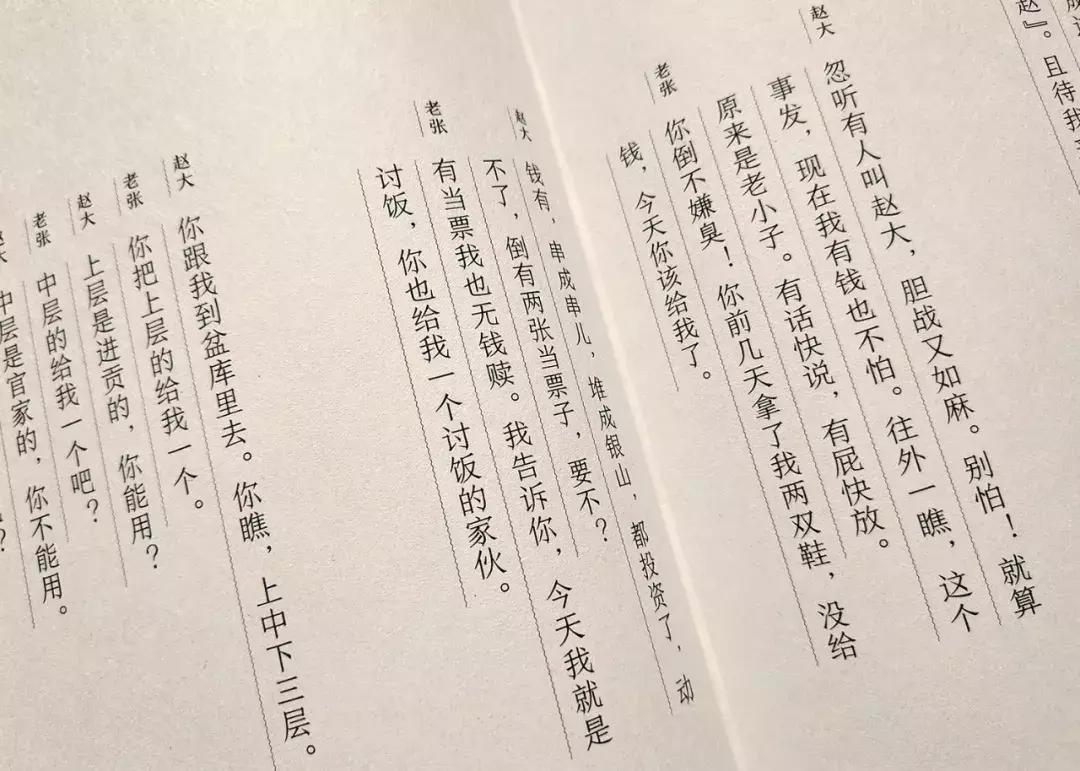 赵』。且待我
赵大 忽听有人叫赵大，胆战又如麻。别怕！就算
事发，现在我有钱也不怕。往外一瞧，这个
原来是老小子。有话快说，有屁快放。
老张 你倒不嫌臭！你前几天拿了我两双鞋，没给
钱，今天你该给我了。
赵大 钱有，串成串儿，堆成银山，都投资了，动
不了，倒有两张当票子，要不？
老张 有当票我也无钱赎。我告诉你，今天我就是
讨饭，你也给我一个讨饭的家伙。
赵大 你跟我到盆库里去。你瞧，上中下三层。
老张 你把上层的给我一个。
赵大 上层是进贡的，你能用？
老张 中层的给我一个吧？
赵大 中层是官家的，你不能用。